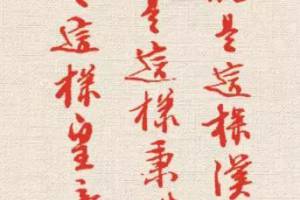 是這樣漢
是這樣秉
這樣皇